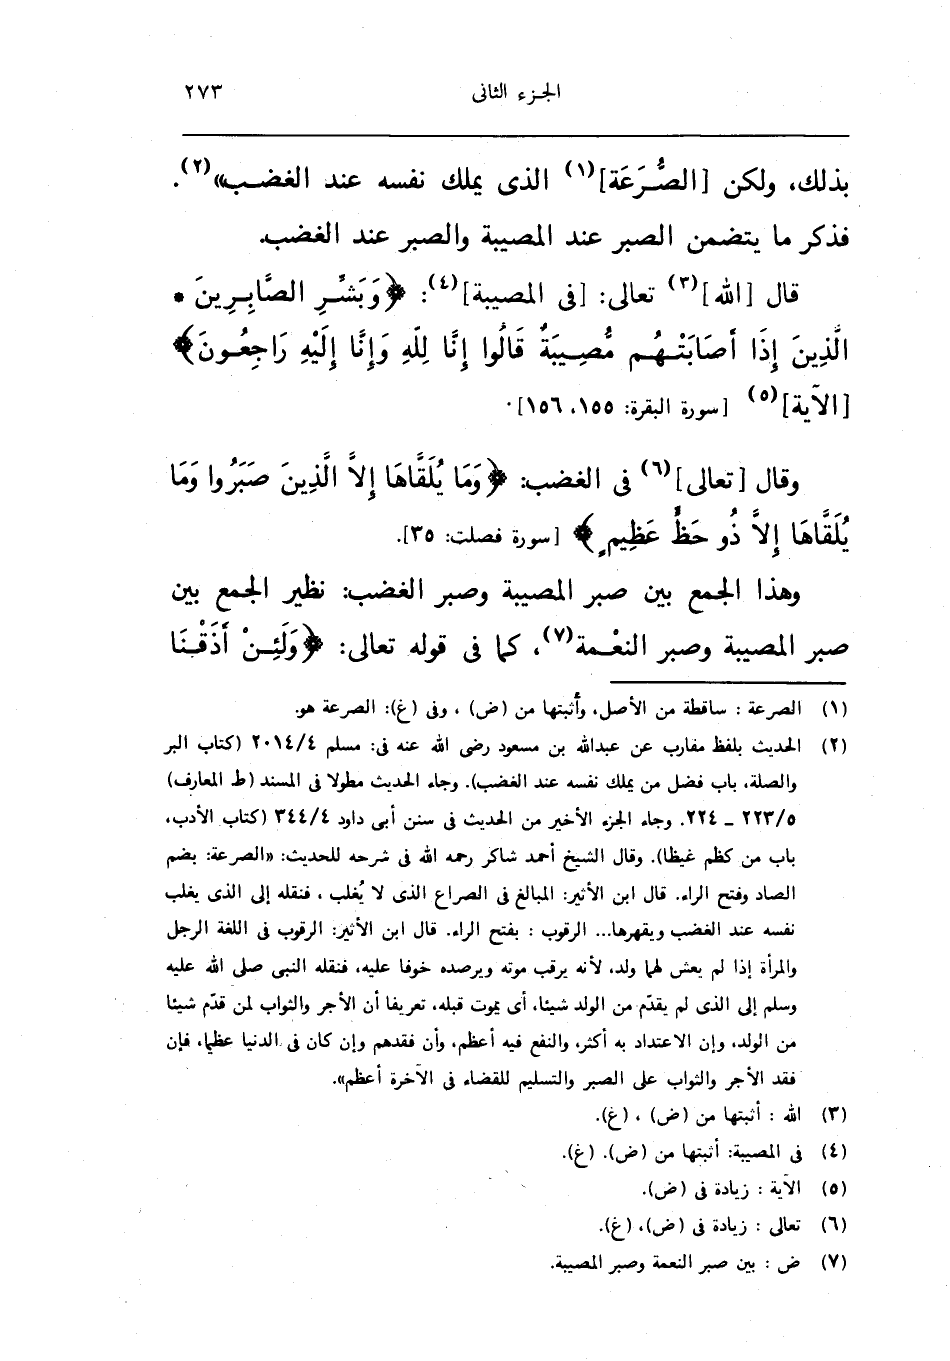 الجزء الثانى ٢٧٣
بذلك، ولكن [الصُّرَعَة]⁽١⁾ الذى يملك نفسه عند الغضب»⁽٢⁾.
فذكر ما يتضمن الصبر عند المصيبة والصبر عند الغضب.
قال [الله]⁽٣⁾ تعالى: [فى المصيبة]⁽٤⁾: ﴿وَبَشِّرِ الصَّابِرِينَ *
الَّذِينَ إِذَا أَصَابَتْهُم مُّصِيبَةٌ قَالُوا إِنَّا لِلَّهِ وَإِنَّا إِلَيْهِ رَاجِعُونَ﴾
[الآية]⁽٥⁾ [سورة البقرة: ١٥٥، ١٥٦].
وقال [تعالى]⁽٦⁾ فى الغضب: ﴿وَمَا يُلَقَّاهَا إِلاَّ الَّذِينَ صَبَرُوا وَمَا
يُلَقَّاهَا إِلاَّ ذُو حَظٍّ عَظِيمٍ﴾ [سورة فصلت: ٣٥].
وهذا الجمع بين صبر المصيبة وصبر الغضب: نظير الجمع بين
صبر المصيبة وصبر النعْمة⁽٧⁾، كما فى قوله تعالى: ﴿وَلَئِنْ أَذَقْنَا
(١) الصرعة : ساقطة من الأصل، وأثبتها من (ض) ، وفى (غ): الصرعة هو.
(٢) الحديث بلفظ مقارب عن عبدالله بن مسعود رضى الله عنه فى: مسلم ٢٠١٤/٤ (كتاب البر
والصلة، باب فضل من يملك نفسه عند الغضب). وجاء الحديث مطولا فى المسند (ط المعارف)
٢٢٣/٥ ـ ٢٢٤. وجاء الجزء الأخير من الحديث فى سنن أبى داود ٣٤٤/٤ (كتاب الأدب،
باب من كظم غيظا). وقال الشيخ أحمد شاكر رحمه الله فى شرحه للحديث: «الصرعة: بضم
الصاد وفتح الراء. قال ابن الأثير: المبالغ فى الصراع الذى لا يُغلب ، فنقله إلى الذى يغلب
نفسه عند الغضب ويقهرها... الرقوب : بفتح الراء. قال ابن الأثير: الرقوب فى اللغة الرجل
والمرأة إذا لم يعش لهما ولد، لأنه يرقب موته ويرصده خوفا عليه، فنقله النبى صلى الله عليه
وسلم إلى الذى لم يقدّم من الولد شيئا، أى يموت قبله، تعريفا أن الأجر والثواب لمن قدّم شيئا
من الولد، وإن الاعتداد به أكثر، والنفع فيه أعظم، وأن فقدهم وإن كان فى الدنيا عظيما، فإن
فقد الأجر والثواب على الصبر والتسليم للقضاء فى الآخرة أعظم».
(٣) الله : أثبتها من (ض) ، (غ).
(٤) فى المصيبة: أثبتها من (ض). (غ).
(٥) الآية : زيادة فى (ض).
(٦) تعالى : زيادة فى (ض)، (غ).
(٧) ض : بين صبر النعمة وصبر المصيبة.